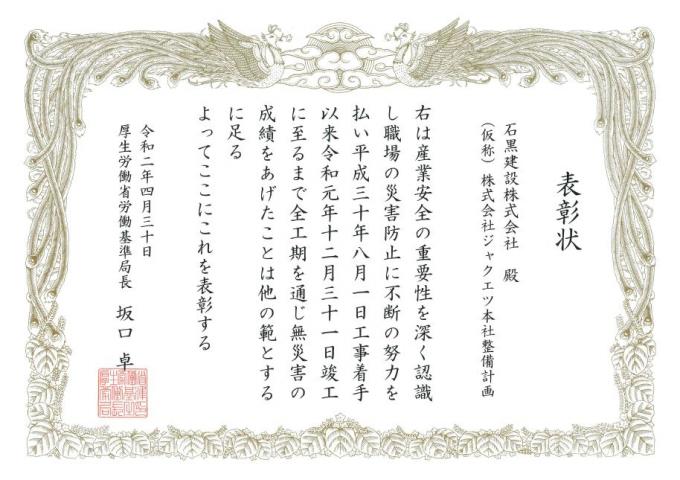 表彰状
石黒建設株式会社 殿
(仮称)株式会社ジャクエツ本社整備計画
右は産業安全の重要性を深く認識
し職場の災害防止に不断の努力を
払い平成三十年八月一日工事着手
以来令和元年十二月三十一日竣工
に至るまで全工期を通じ無災害の
成績をあげたことは他の範とする
に足る
よってここにこれを表彰する
令和二年四月三十日
厚生労働省労働基準局長 坂口 卓